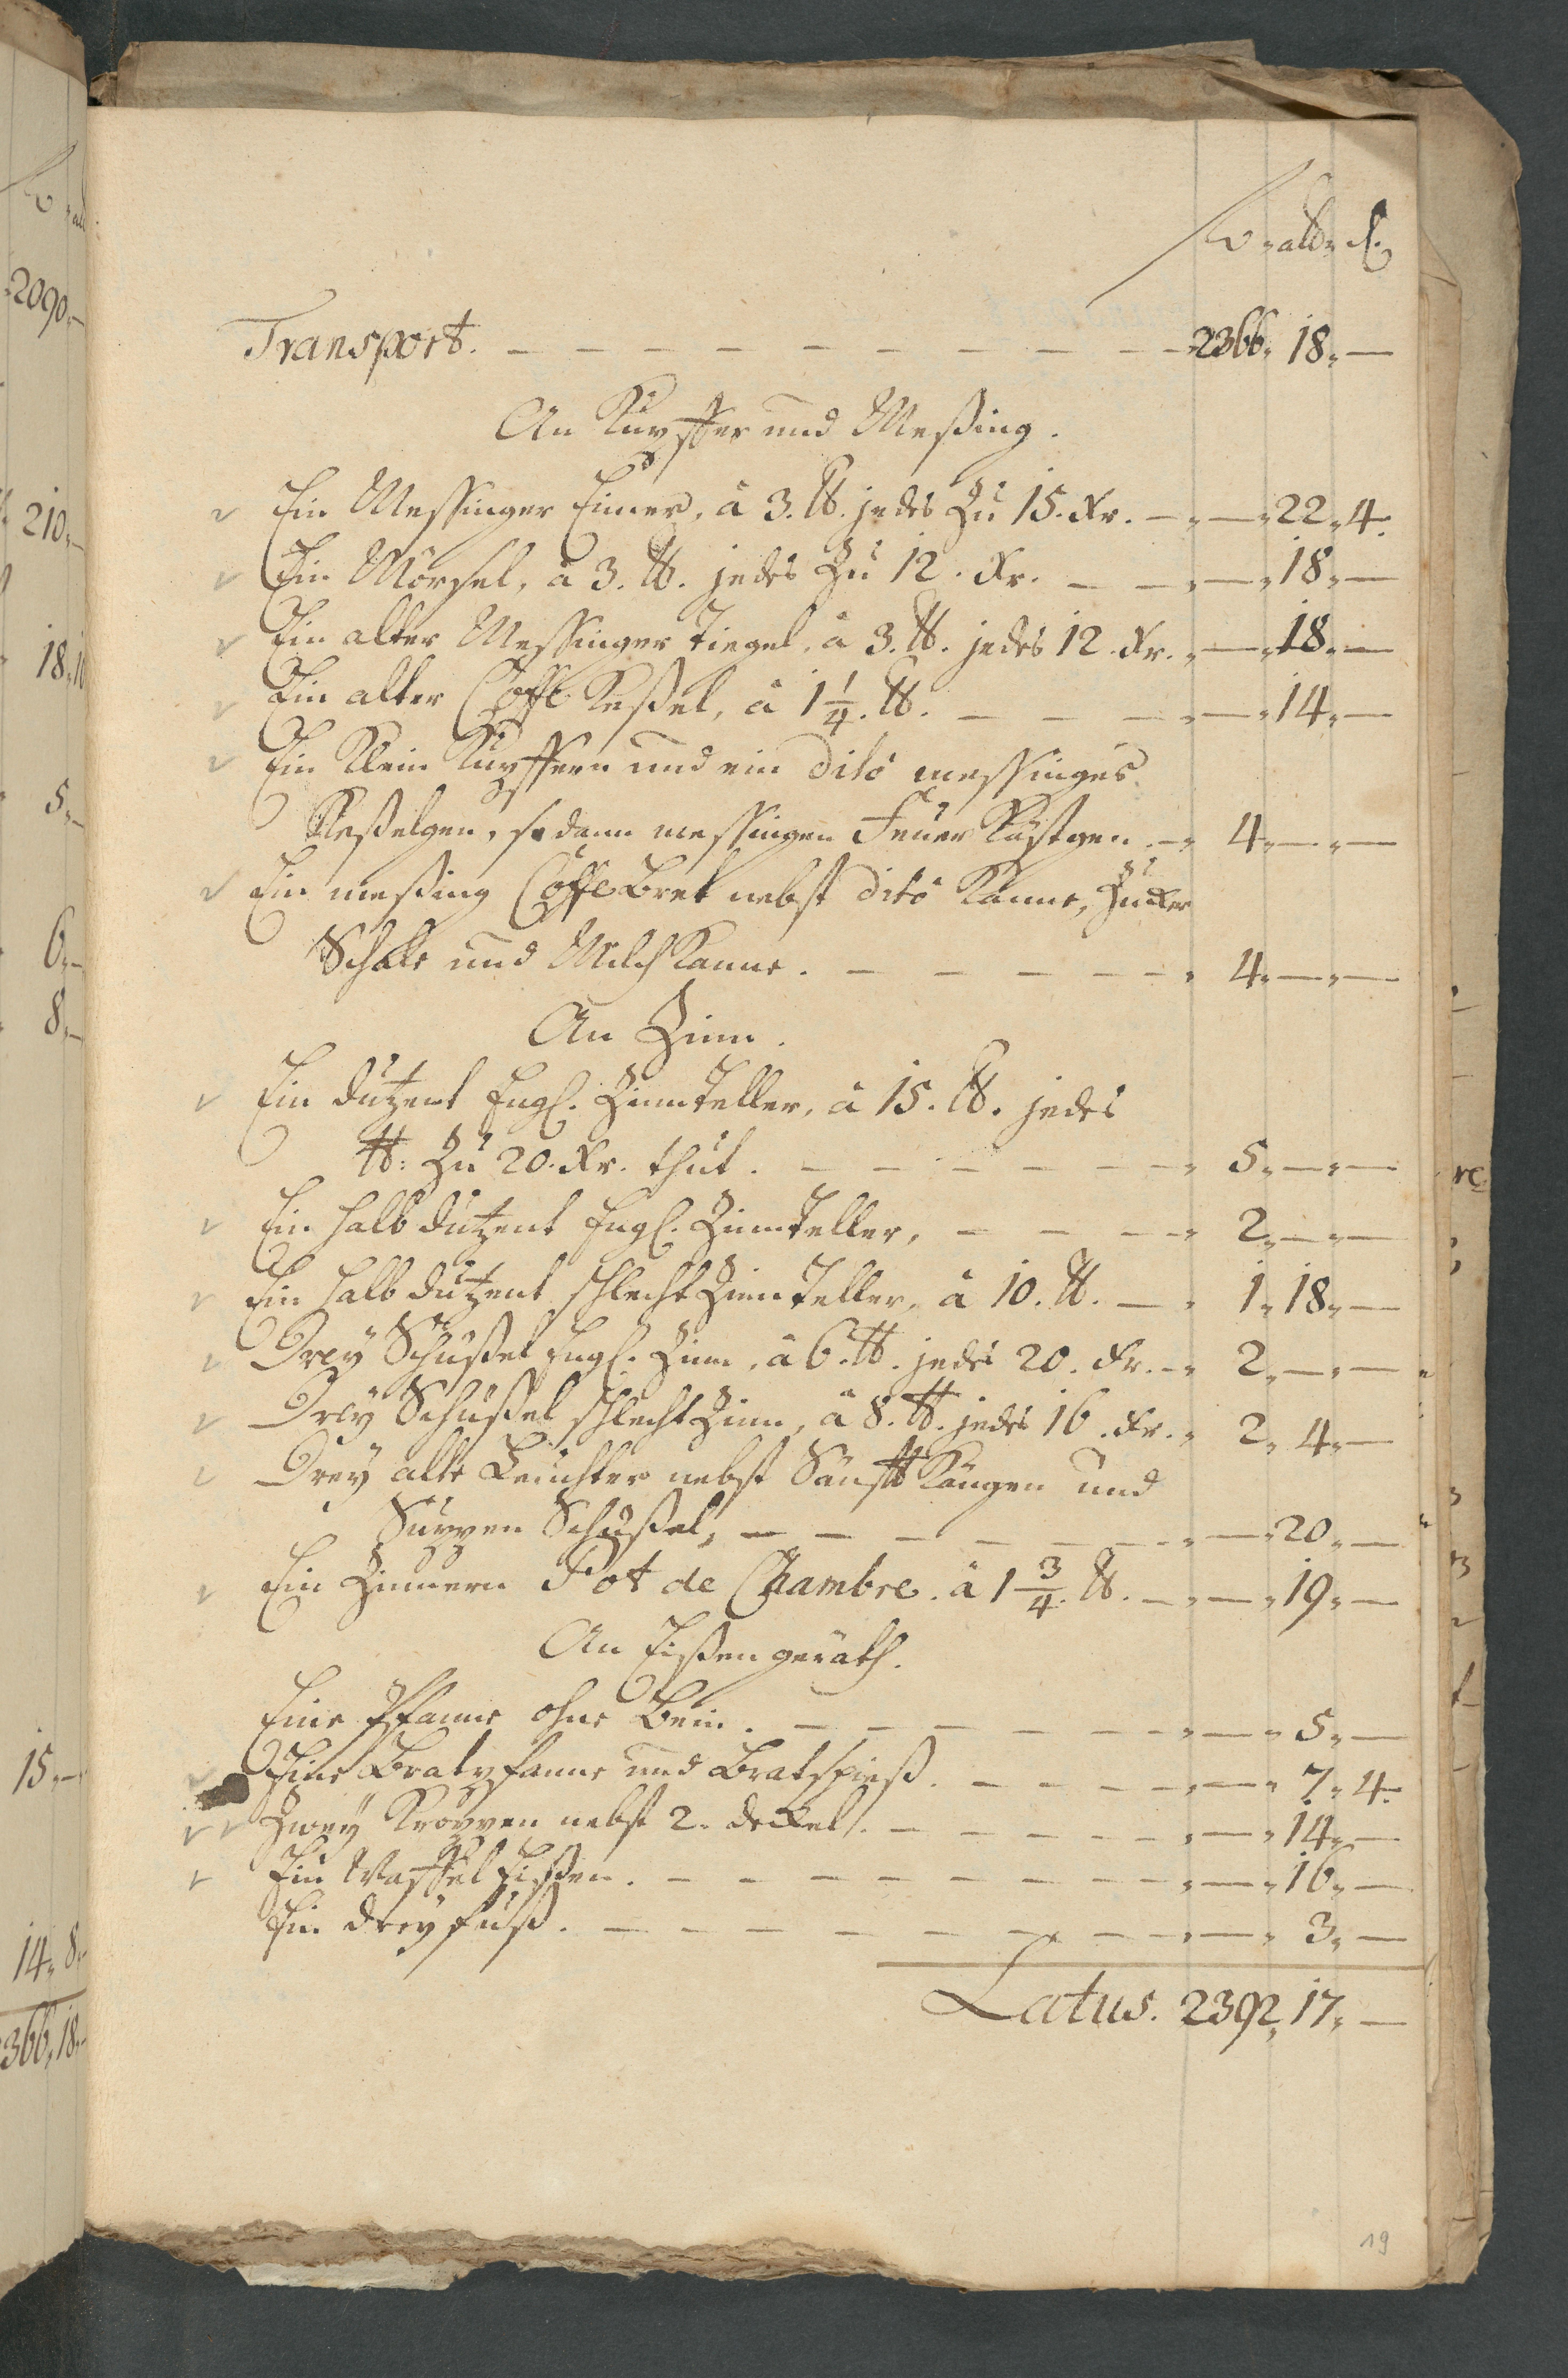 rth alb d.
Transport. — — — 2366. 18. —
An Kupffer und Meßing.
Ein Messinger Eimer, â 3. ℔. jedes Zu 15. Xr. — — 22. 4.
Ein Mörsel, â 3. ℔. jedes Zu 12. Xr. — — 18. —
Ein alter Messinger Tiegel, â 3. ℔. jedes 12. Xr. — 18. —
Ein alter Coffe Keßel, â 1 1/4. ℔. — — 14. —
Ein Klein Kupffern und ein dito messinges
Keßelgen, sodann messingen Feuer Kästgen. — 4. — —
Ein meßing Coffe Bret nebst dito Kanne, Zucker
Schale und Milch Kanne. — — 4. — —
An Zinn.
Ein dutzent Engl. Zinn Teller, â 15. ℔. jedes
℔: Zu 20. Xr. thut. — — 5. — —
Ein halb dutzent Engl. Zinn Teller, — — 2. — —
Ein halb dutzent schlecht Zinn Teller, â 10. ℔. — 1. 18. —
Drey Schüßel Engl. Zinn, â 6. ℔. jedes 20. Xr. — 2. — —
Drey Schüßel schlecht Zinn, â 8. ℔. jedes 16. Xr. 2. 4. —
Drey alte Leuchter nebst Känngen und
Suppen Schüßel, — — 20. —
Ein Zinnern Pot de Chambre. â 1 3/4. ℔. — — 19. —
An Eißen geräth.
Eine Pfanne ohne Bein. — — 5. —
Eine Bratpfanne und Bratspieß. — — 7. 4.
Zwey Kroppen nebst 2. deckel. — — 14. —
Ein Waffel Eißen. — — 16. —
Ein dreyfuß. — — 3. —
Latus. 2392. 17. —
19